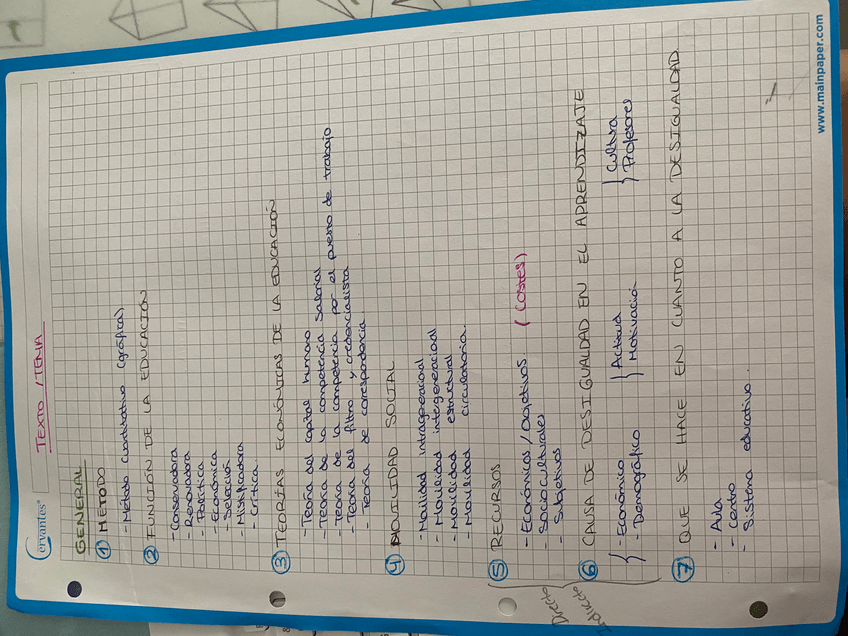 Cervantes
TEXTO / TEMA
GENERAL
① MÉTODO
- Método cuantitativo (gráfica)
② FUNCIÓN DE LA EDUCACIÓN
- Conservadora
- Renovadora
- Política
- Económica
- Selección
- Mistificadora
- Crítica.
③ TEORÍAS ECONÓMICAS DE LA EDUCACIÓN
- Teoría del capital humano
- Teoría de la competencia salarial
- Teoría de la competencia por el puesto de trabajo
- Teoría del filtro y credencialista
- Teoría de correspondencia.
④ MOVILIDAD SOCIAL
- Movilidad intrageneracional
- Movilidad intergeneracional
- Movilidad estructural
- Movilidad circulatoria.
⑤ RECURSOS
- Económicos / Objetivos (Costes)
- Socioculturales
- Subjetivos
Directo
Indirecto
⑥ CAUSA DE DESIGUALDAD EN EL APRENDIZAJE
- Económico } Actitud } Cultura
- Demográfico Motivación Profesores
⑦ QUE SE HACE EN CUANTO A LA DESIGUALDAD
- Aula
- Centro
- Sistema educativo.
www.mainpaper.com